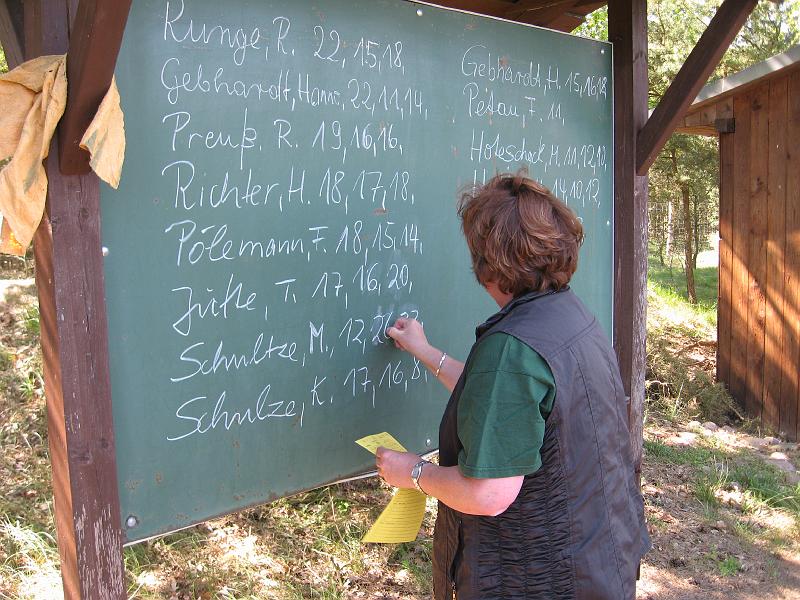 Runge, R. 22, 15, 18,
Gebhardt, Hans, 22, 11, 14,
Preuß, R. 19, 16, 16,
Richter, H. 18, 17, 18,
Pölemann, F. 18, 15, 14,
Jütte, T. 17, 16, 20,
Schultze, M, 12,
Schulze, K. 17, 16, 8,
Gebhardt, H. 15, 16, 18
Petau, F. 11,
Holescheck, M. 11, 12, 10,
14, 10, 12,